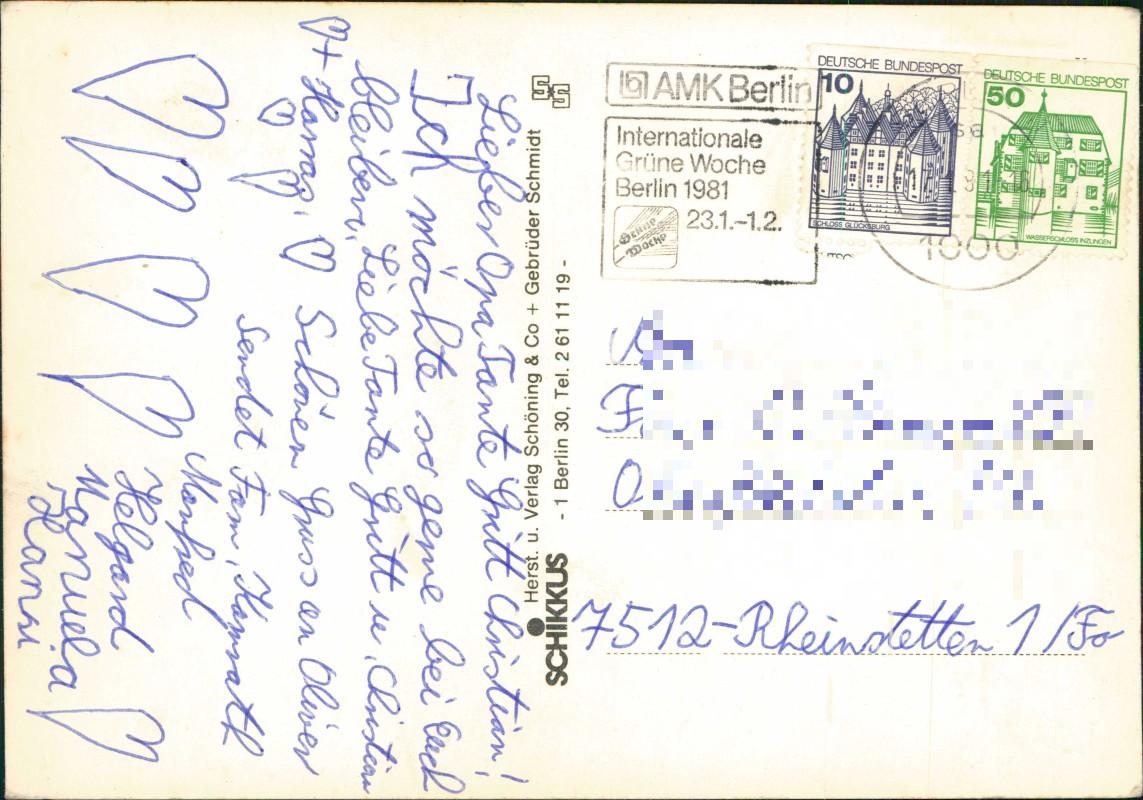 Lieber Opa Tante Gritt Christian!
Ich möchte so gerne bei Euch
bleiben, Liebe Tante Gritt u. Christian
+ Hannas,
Schönen Gruss an Oliver
sendet Fam.
Manfred
Helgard
Manuela
Hansi
SCHIKKUS
Herst. u. Verlag Schöning & Co + Gebrüder Schmidt
- 1 Berlin 30, Tel. 2 61 11 19 -
AMK Berlin
Internationale
Grüne Woche
Berlin 1981
23.1.–1.2.
DEUTSCHE BUNDESPOST
10
SCHLOSS GLÜCKSBURG
DEUTSCHE BUNDESPOST
50
WASSERSCHLOSS INZLINGEN
1000
7512-Rheinstetten 1/Fo